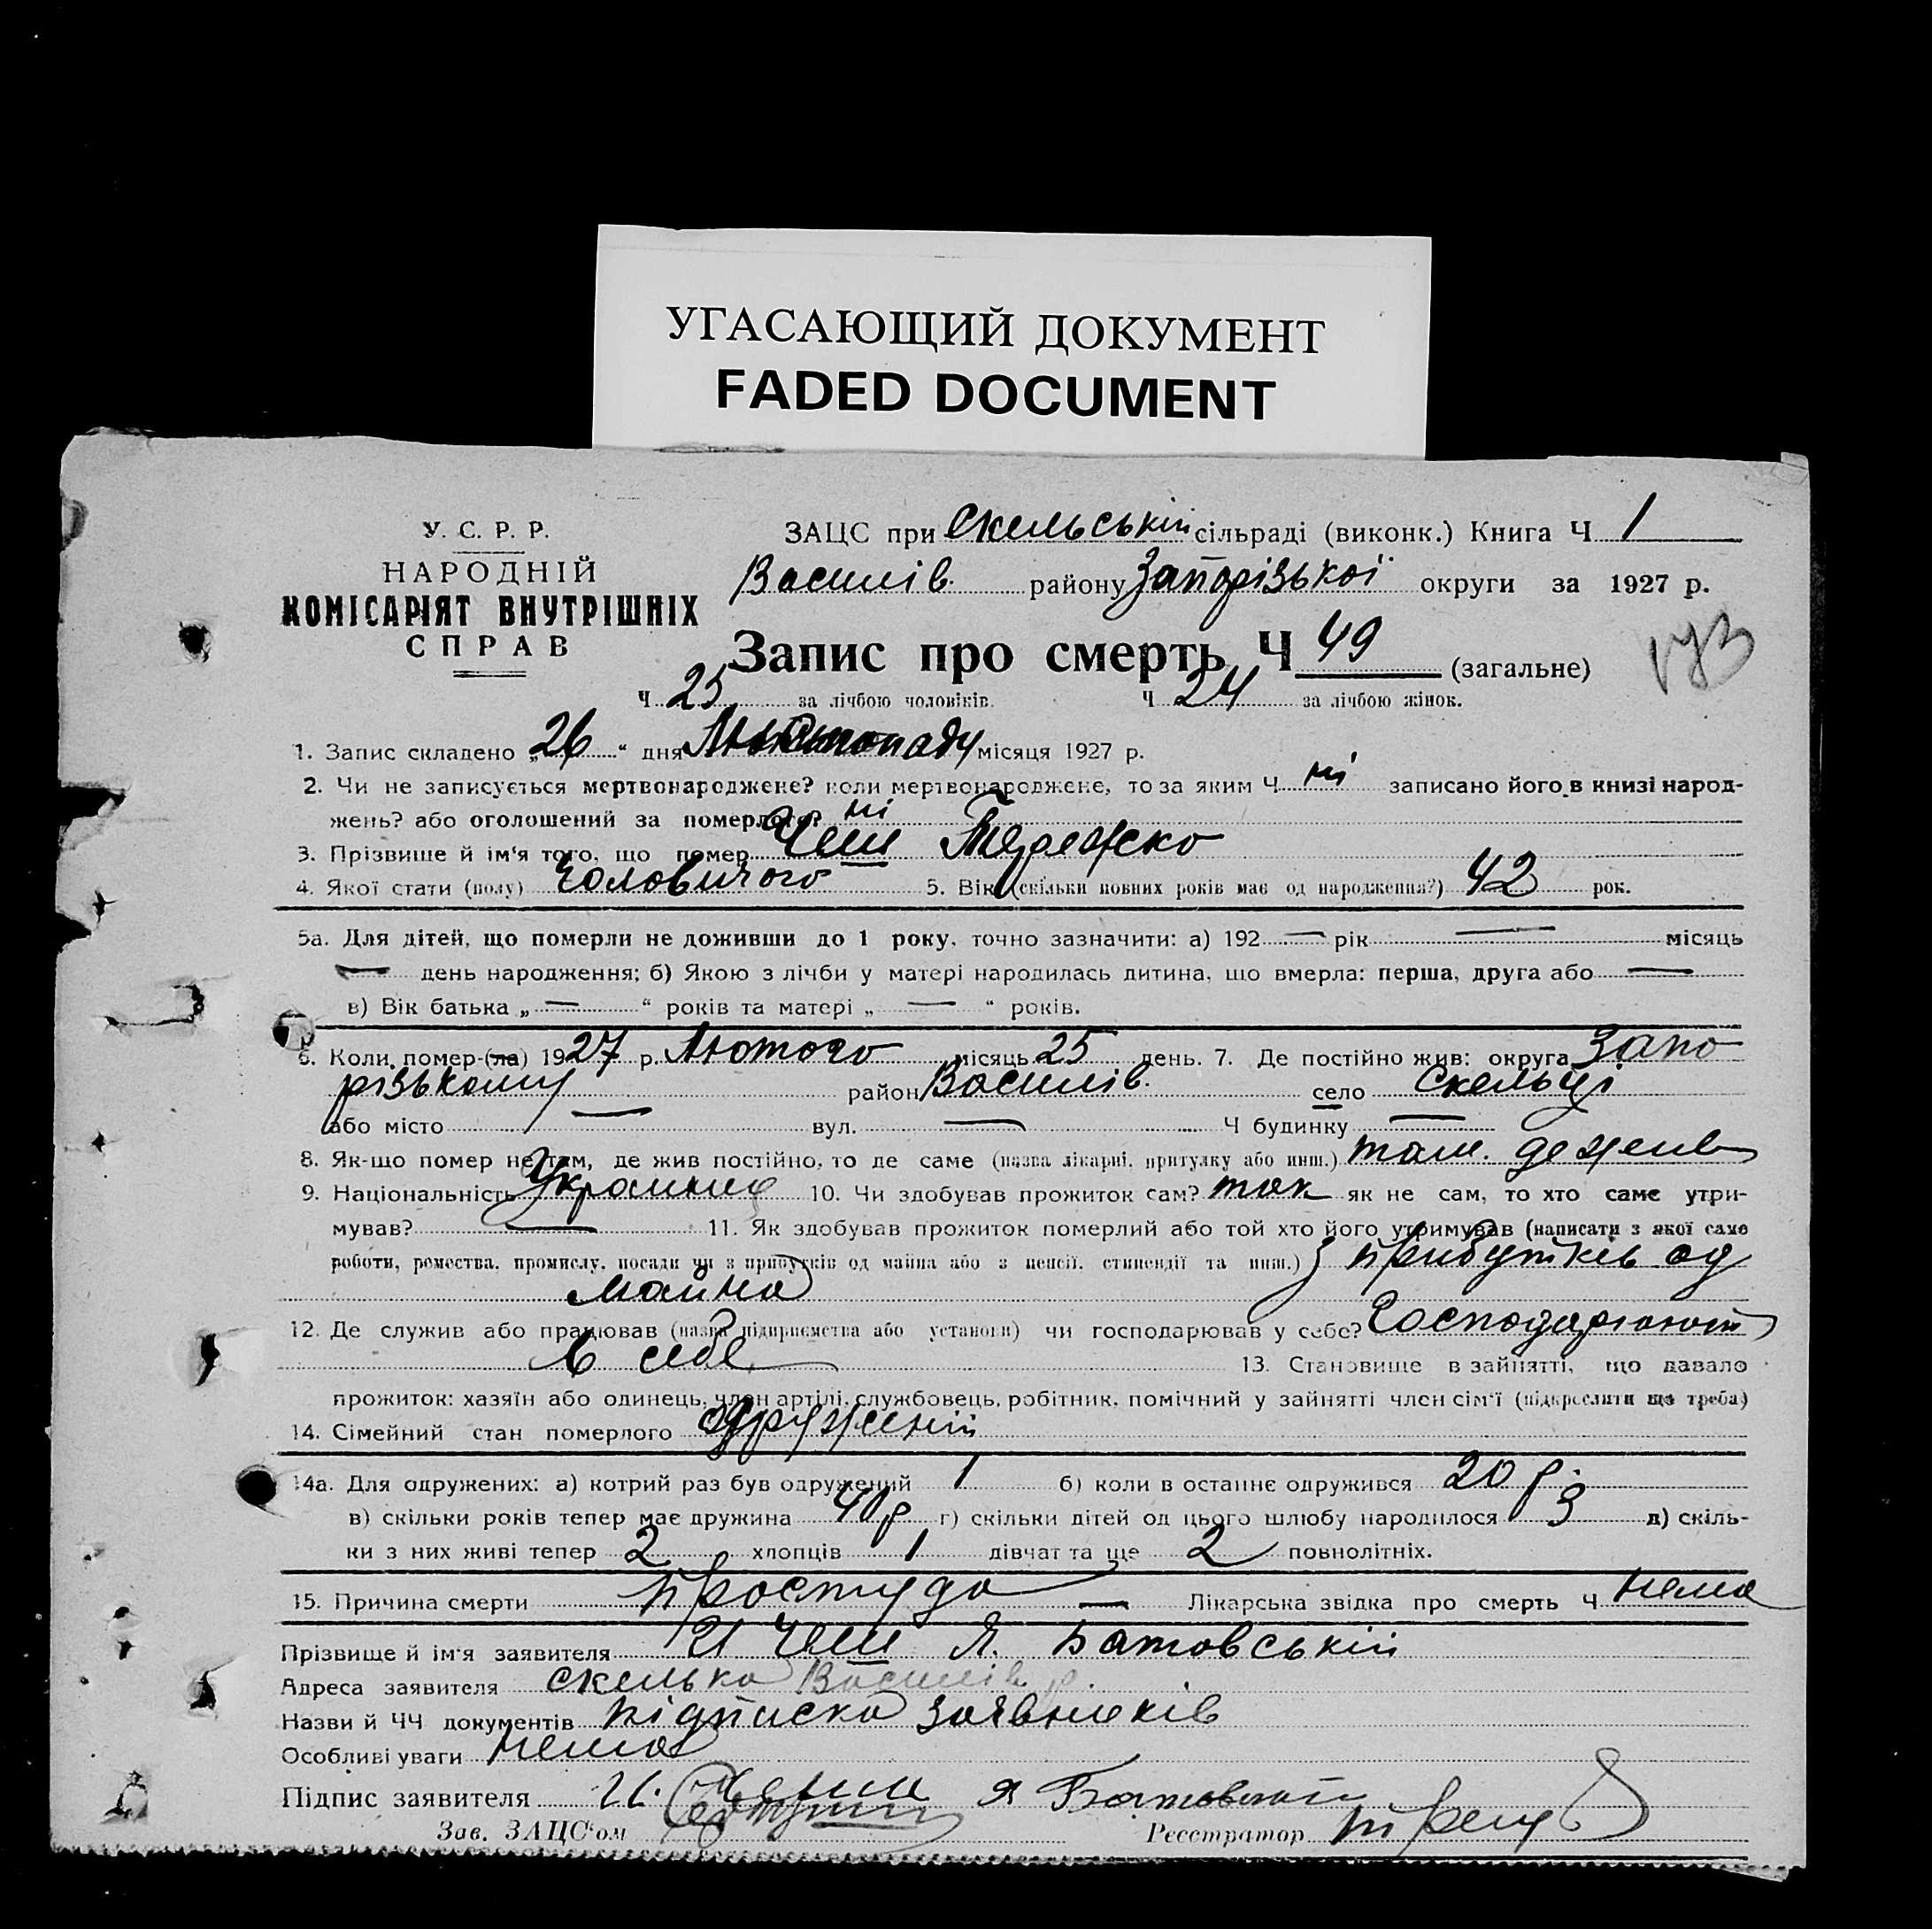 УГАСАЮЩИЙ ДОКУМЕНТ
FADED DOCUMENT
У. С. Р. Р.
НАРОДНІЙ
КОМІСАРІЯТ ВНУТРІШНІХ
СПРАВ
ЗАЦС при Скельській сільраді (виконк.) Книга Ч 1
Василів. району Запорізької округи за 1927 р.
Запис про смерть Ч 49 (загальне)
Ч 25 за лічбою чоловіків. Ч 24 за лічбою жінок.
1. Запис складено „26“ дня місяця 1927 р.
2. Чи не записується мертвонароджене? коли мертвонароджене, то за яким Ч ні записано його в книзі народ-
жень? або оголошений за померлого? ні
3. Прізвище й ім'я того, що помер
4. Якої стати (полу) Чоловичого 5. Вік (скільки повних років має од народження?) 42 рок.
5а. Для дітей, що померли не доживши до 1 року, точно зазначити: а) 192 — рік — місяць
— день народження; б) Якою з лічби у матері народилась дитина, що вмерла: перша, друга або —
в) Вік батька „—“ років та матері „—“ років.
6. Коли помер-(ла) 1927 р. Лютого місяць 25 день. 7. Де постійно жив: округа Запо
різькому район Василів. село Скельці
або місто — вул. — Ч будинку —
8. Як-що помер не там, де жив постійно, то де саме (назва лікарні, притулку або инш.) там. де жив
9. Національність Украинец 10. Чи здобував прожиток сам? так як не сам, то хто саме утри-
мував? — 11. Як здобував прожиток померлий або той хто його утримував (написати з якої саме
роботи, ремества, промислу, посади чи з прибутків од майна або з пенсії, стипендії та инш.) З прибутків од
майна
12. Де служив або працював (назва підприємства або установи) чи господарював у себе?
в себе 13. Становище в зайнятті, що давало
прожиток: хазяїн або одинець, член артілі, службовець, робітник, помічний у зайнятті член сім'ї (підкреслити що треба)
14. Сімейний стан померлого одружений
14а. Для одружених: а) котрий раз був одружений 1 б) коли в останнє одружився 20 р.
в) скільки років тепер має дружина 40 р г) скільки дітей од цього шлюбу народилося 3 д) скіль-
ки з них живі тепер 2 хлопців 1 дівчат та ще 2 повнолітніх.
15. Причина смерти простуда — Лікарська звідка про смерть Ч нема
Прізвище й ім'я заявителя Я. Батовській
Адреса заявителя Скелька Василів р.
Назви й ЧЧ документів підписка заявників
Особливі уваги нема
Підпис заявителя
Зав. ЗАЦС'ом Реєстратор